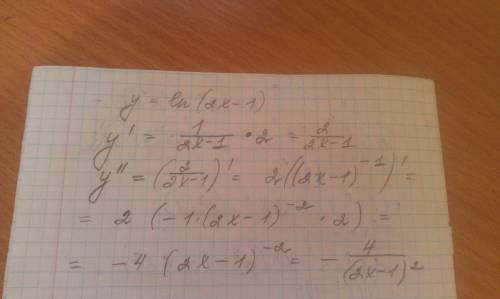 y = ln(2x-1)
y' = 1/(2x-1) • 2 = 2/(2x-1)
y'' = (2/(2x-1))' = 2((2x-1)^-1)' =
= 2 (-1·(2x-1)^-2 · 2) =
= -4 · (2x-1)^-2 = - 4/(2x-1)^2